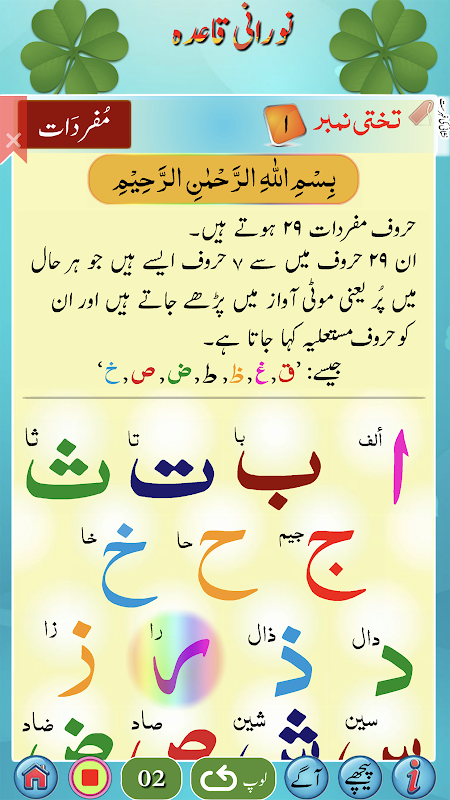 نورانی قاعدہ
تختی نمبر ۱ مُفرَدَات
بِسْمِ اللهِ الرَّحْمٰنِ الرَّحِيْمِ
حروف مفردات ۲۹ ہوتے ہیں۔
ان ۲۹ حروف میں سے ۷ حروف ایسے ہیں جو ہر حال
میں پُر یعنی موٹی آواز میں پڑھے جاتے ہیں اور ان
کو حروف مستعلیہ کہا جاتا ہے۔
جیسے: ’ق, غ, ظ, ط, ض, ص, خ‘
ألف ا با ب تا ت ثا ث
جیم ج حا ح خا خ
دال د ذال ذ را ر زا ز
سین س شین ش صاد ص ضاد ض
02 لوپ آگے پیچھے i